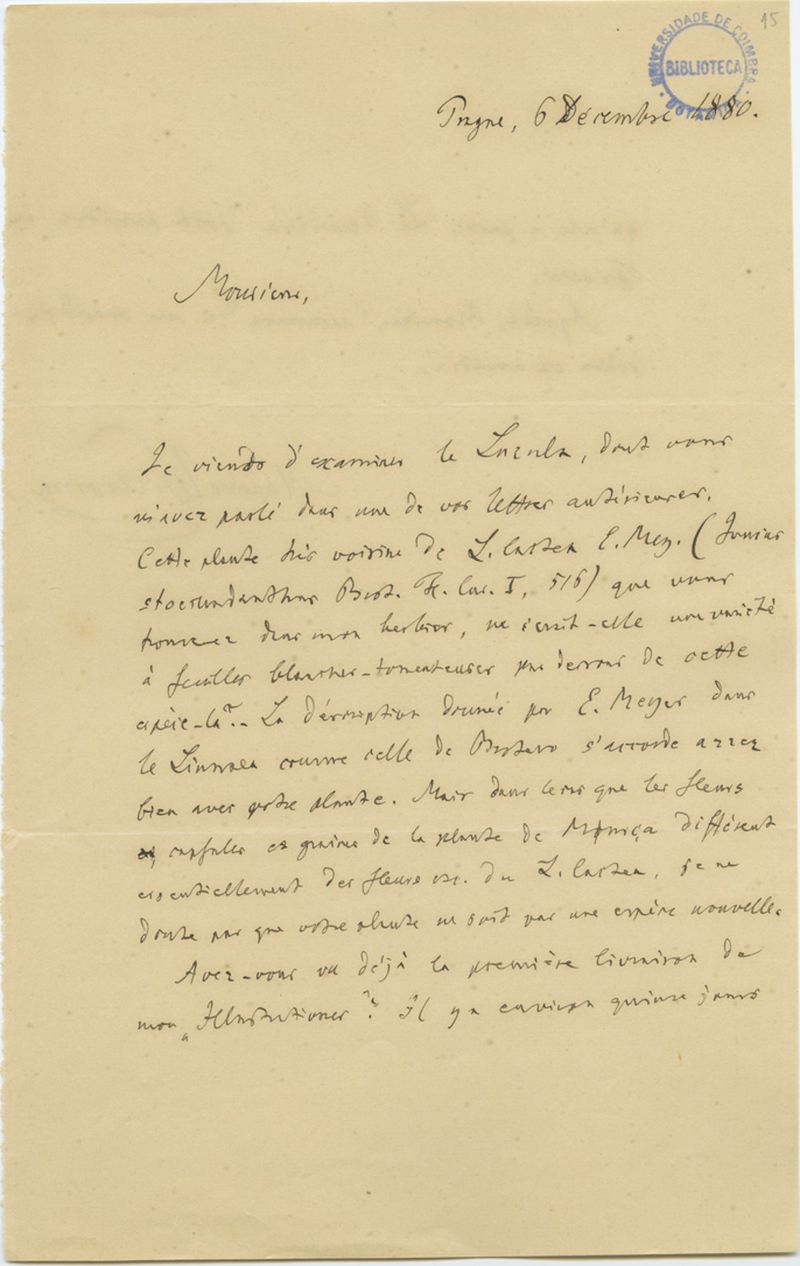 15
UNIVERSIDADE DE COIMBRA
BIBLIOTECA
Prague, 6 Décembre 1880.
Monsieur,
Je viens d'examiner le Luzula, dont vous
m'avez parlé dans une de vos lettres antérieures.
Cette plante très voisine de L. lactea E. Mey. (Juncus
Brot. Fl. lus. I, 516) que vous
trouverez dans mon herbier, ne serait-elle une variété
à feuilles blanches-tomenteuses par dessous de cette
espèce-là?- La déscription donnée par E. Meyer dans
le Linnaea comme celle de Brotero s'accorde assez
bien avec votre plante. Mais dans le cas que les fleurs
capsules et graines de la plante de différent
essentiellement des fleurs etc. du L. lactea, je ne
doute pas que votre plante ne soit pas une espèce nouvelle.
Avez-vous vu déjà la première livraison de
mon „Illustrationes"? Il y a environ quinze jours